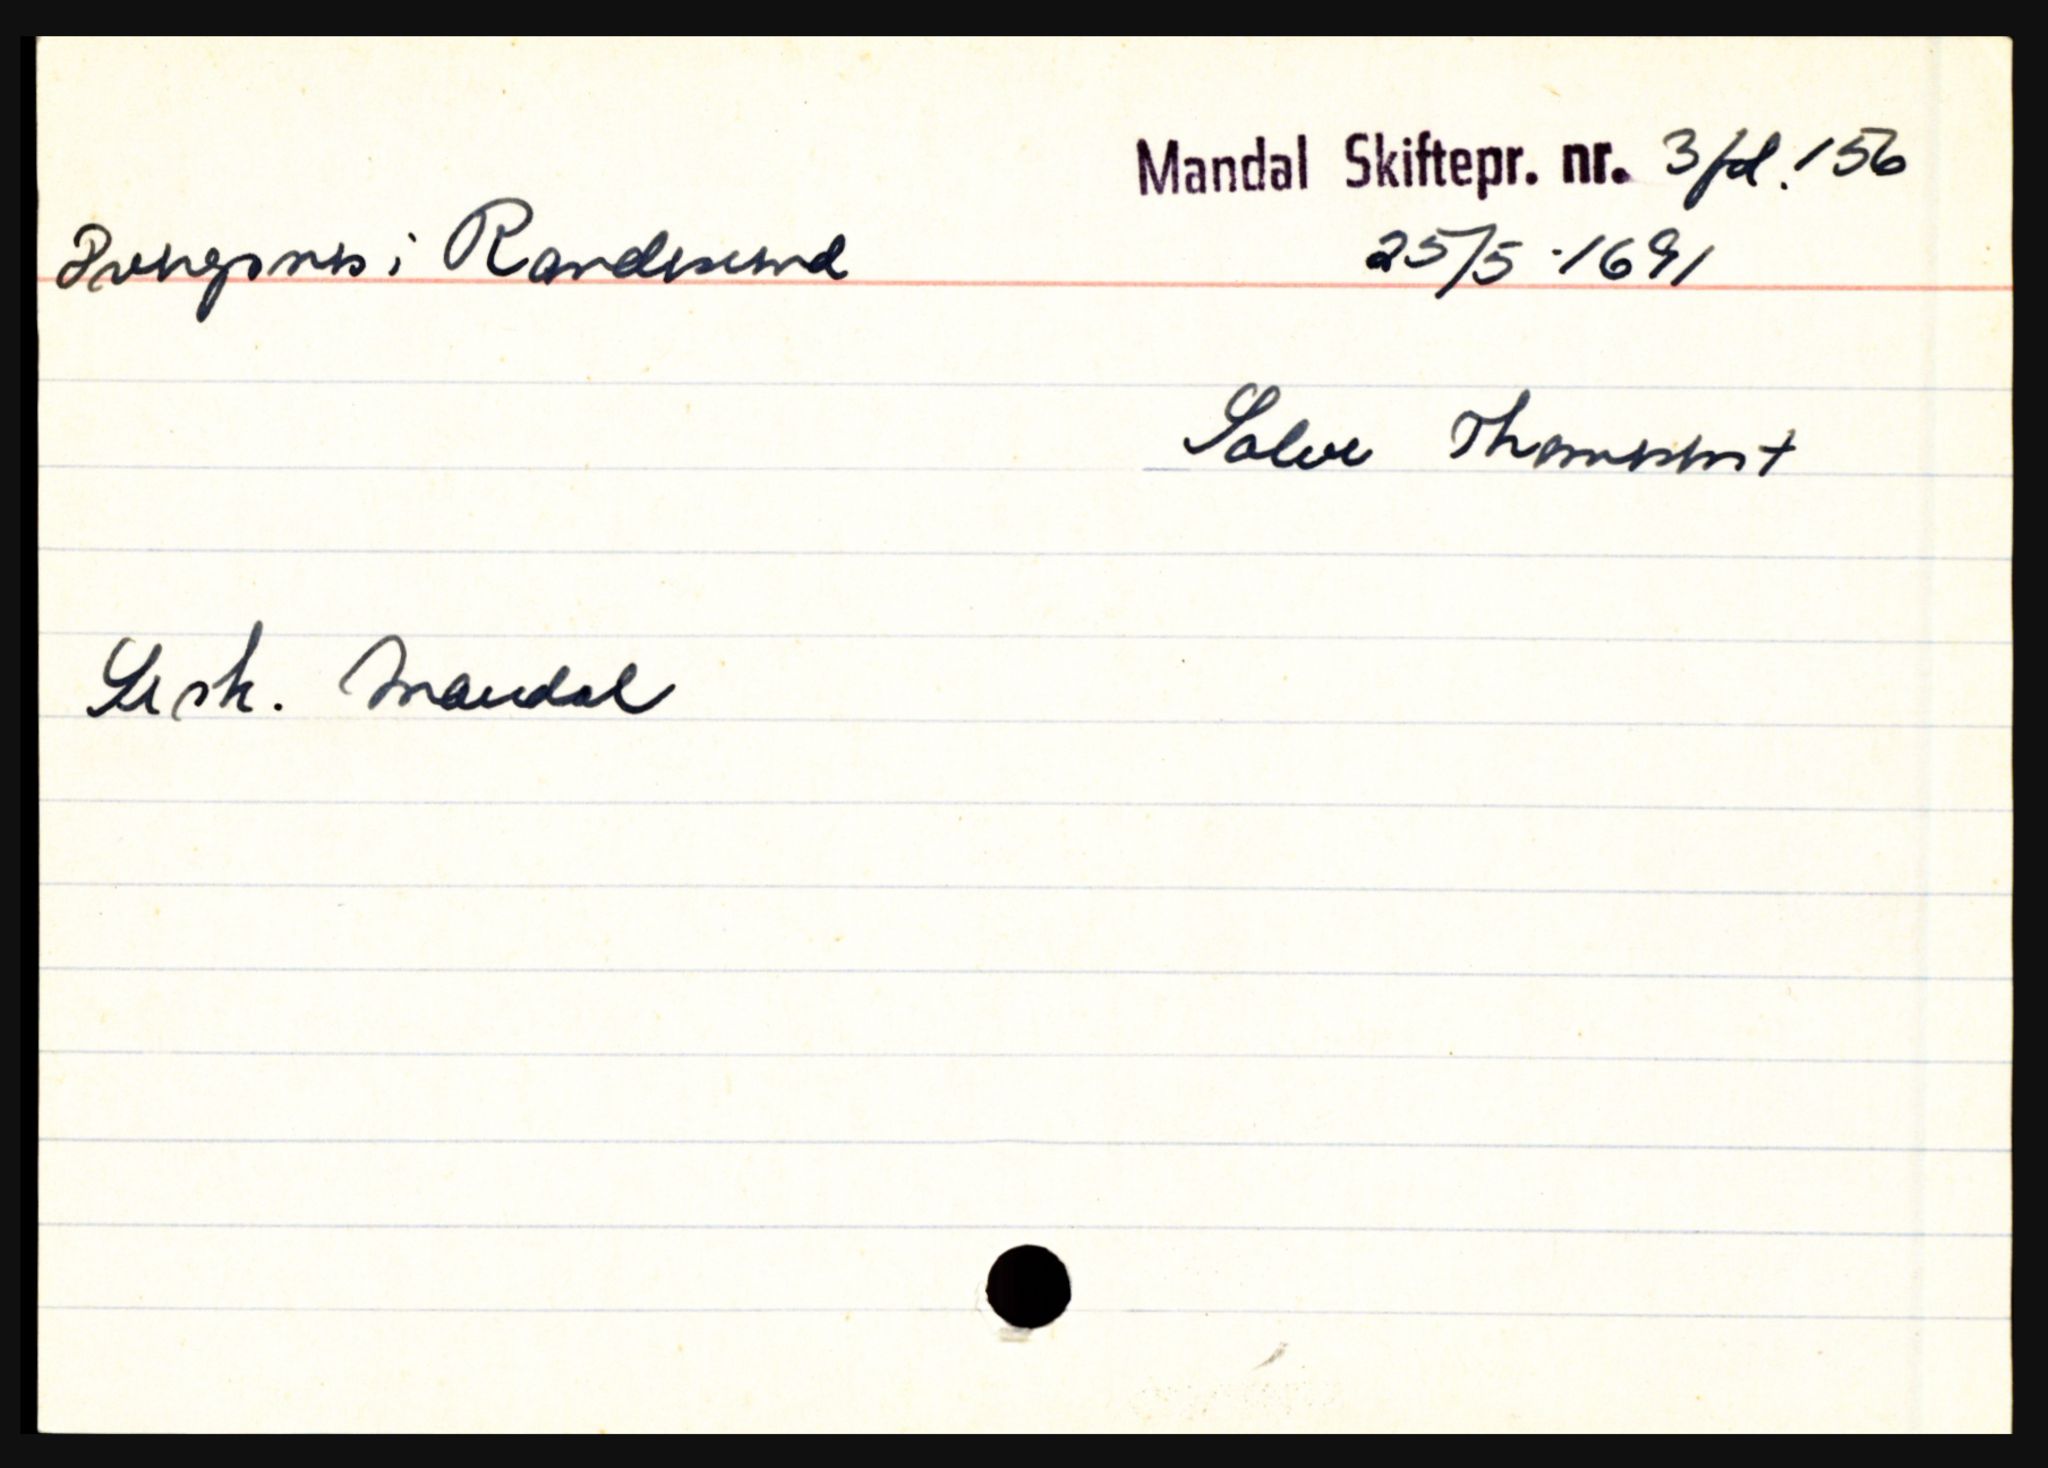 Mandal Skiftepr. nr. 3 fol. 156
i Randesund 25/5-1691
Salve Thomessøn +
Se sk. Mandal